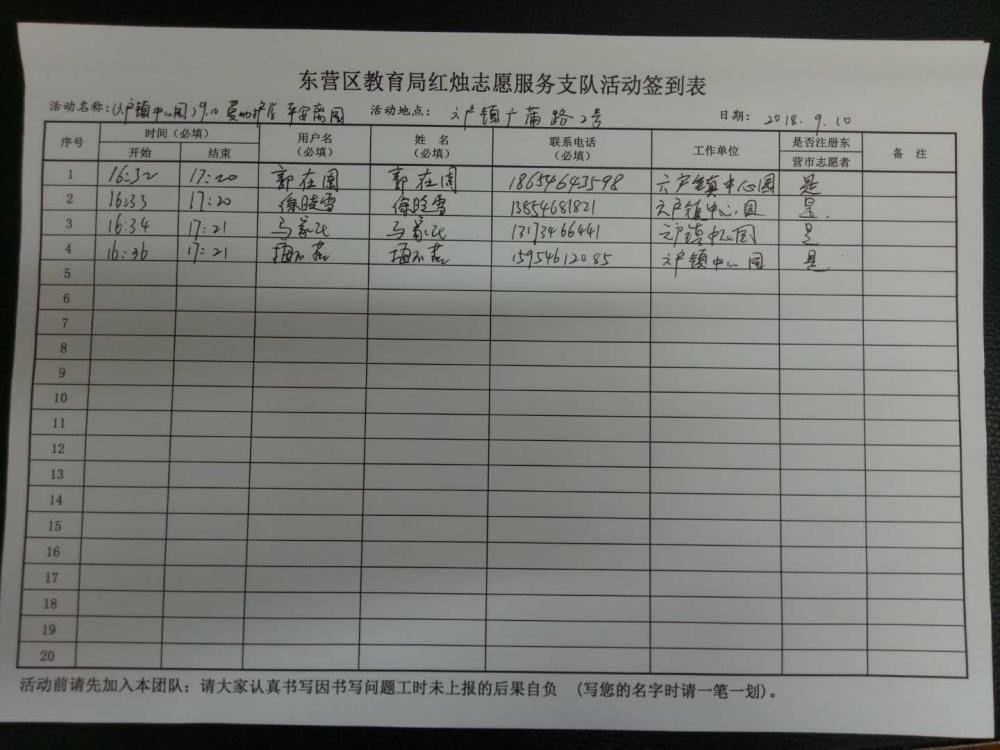 东营区教育局红烛志愿服务支队活动签到表
活动名称：(六户镇中心园)9.10爱心护学 平安离园 活动地点：六户镇广蒲路2号 日期：2018.9.10
序号 时间（必填） 用户名（必填） 姓 名（必填） 联系电话（必填） 工作单位 是否注册东营市志愿者 备 注
开始 结束
1 16:32 17:20 郭在园 郭在园 18654643598 六户镇中心园 是
2 16:33 17:20 徐晓雪 徐晓雪 13854681821 六户镇中心园 是.
3 16:34 17:21 马 马 13173466441 六户镇中心园 是
4 16:36 17:21 15954612085 六户镇中心园 是
5
6
7
8
9
10
11
12
13
14
15
16
17
18
19
20
活动前请先加入本团队；请大家认真书写因书写问题工时未上报的后果自负 （写您的名字时请一笔一划）。